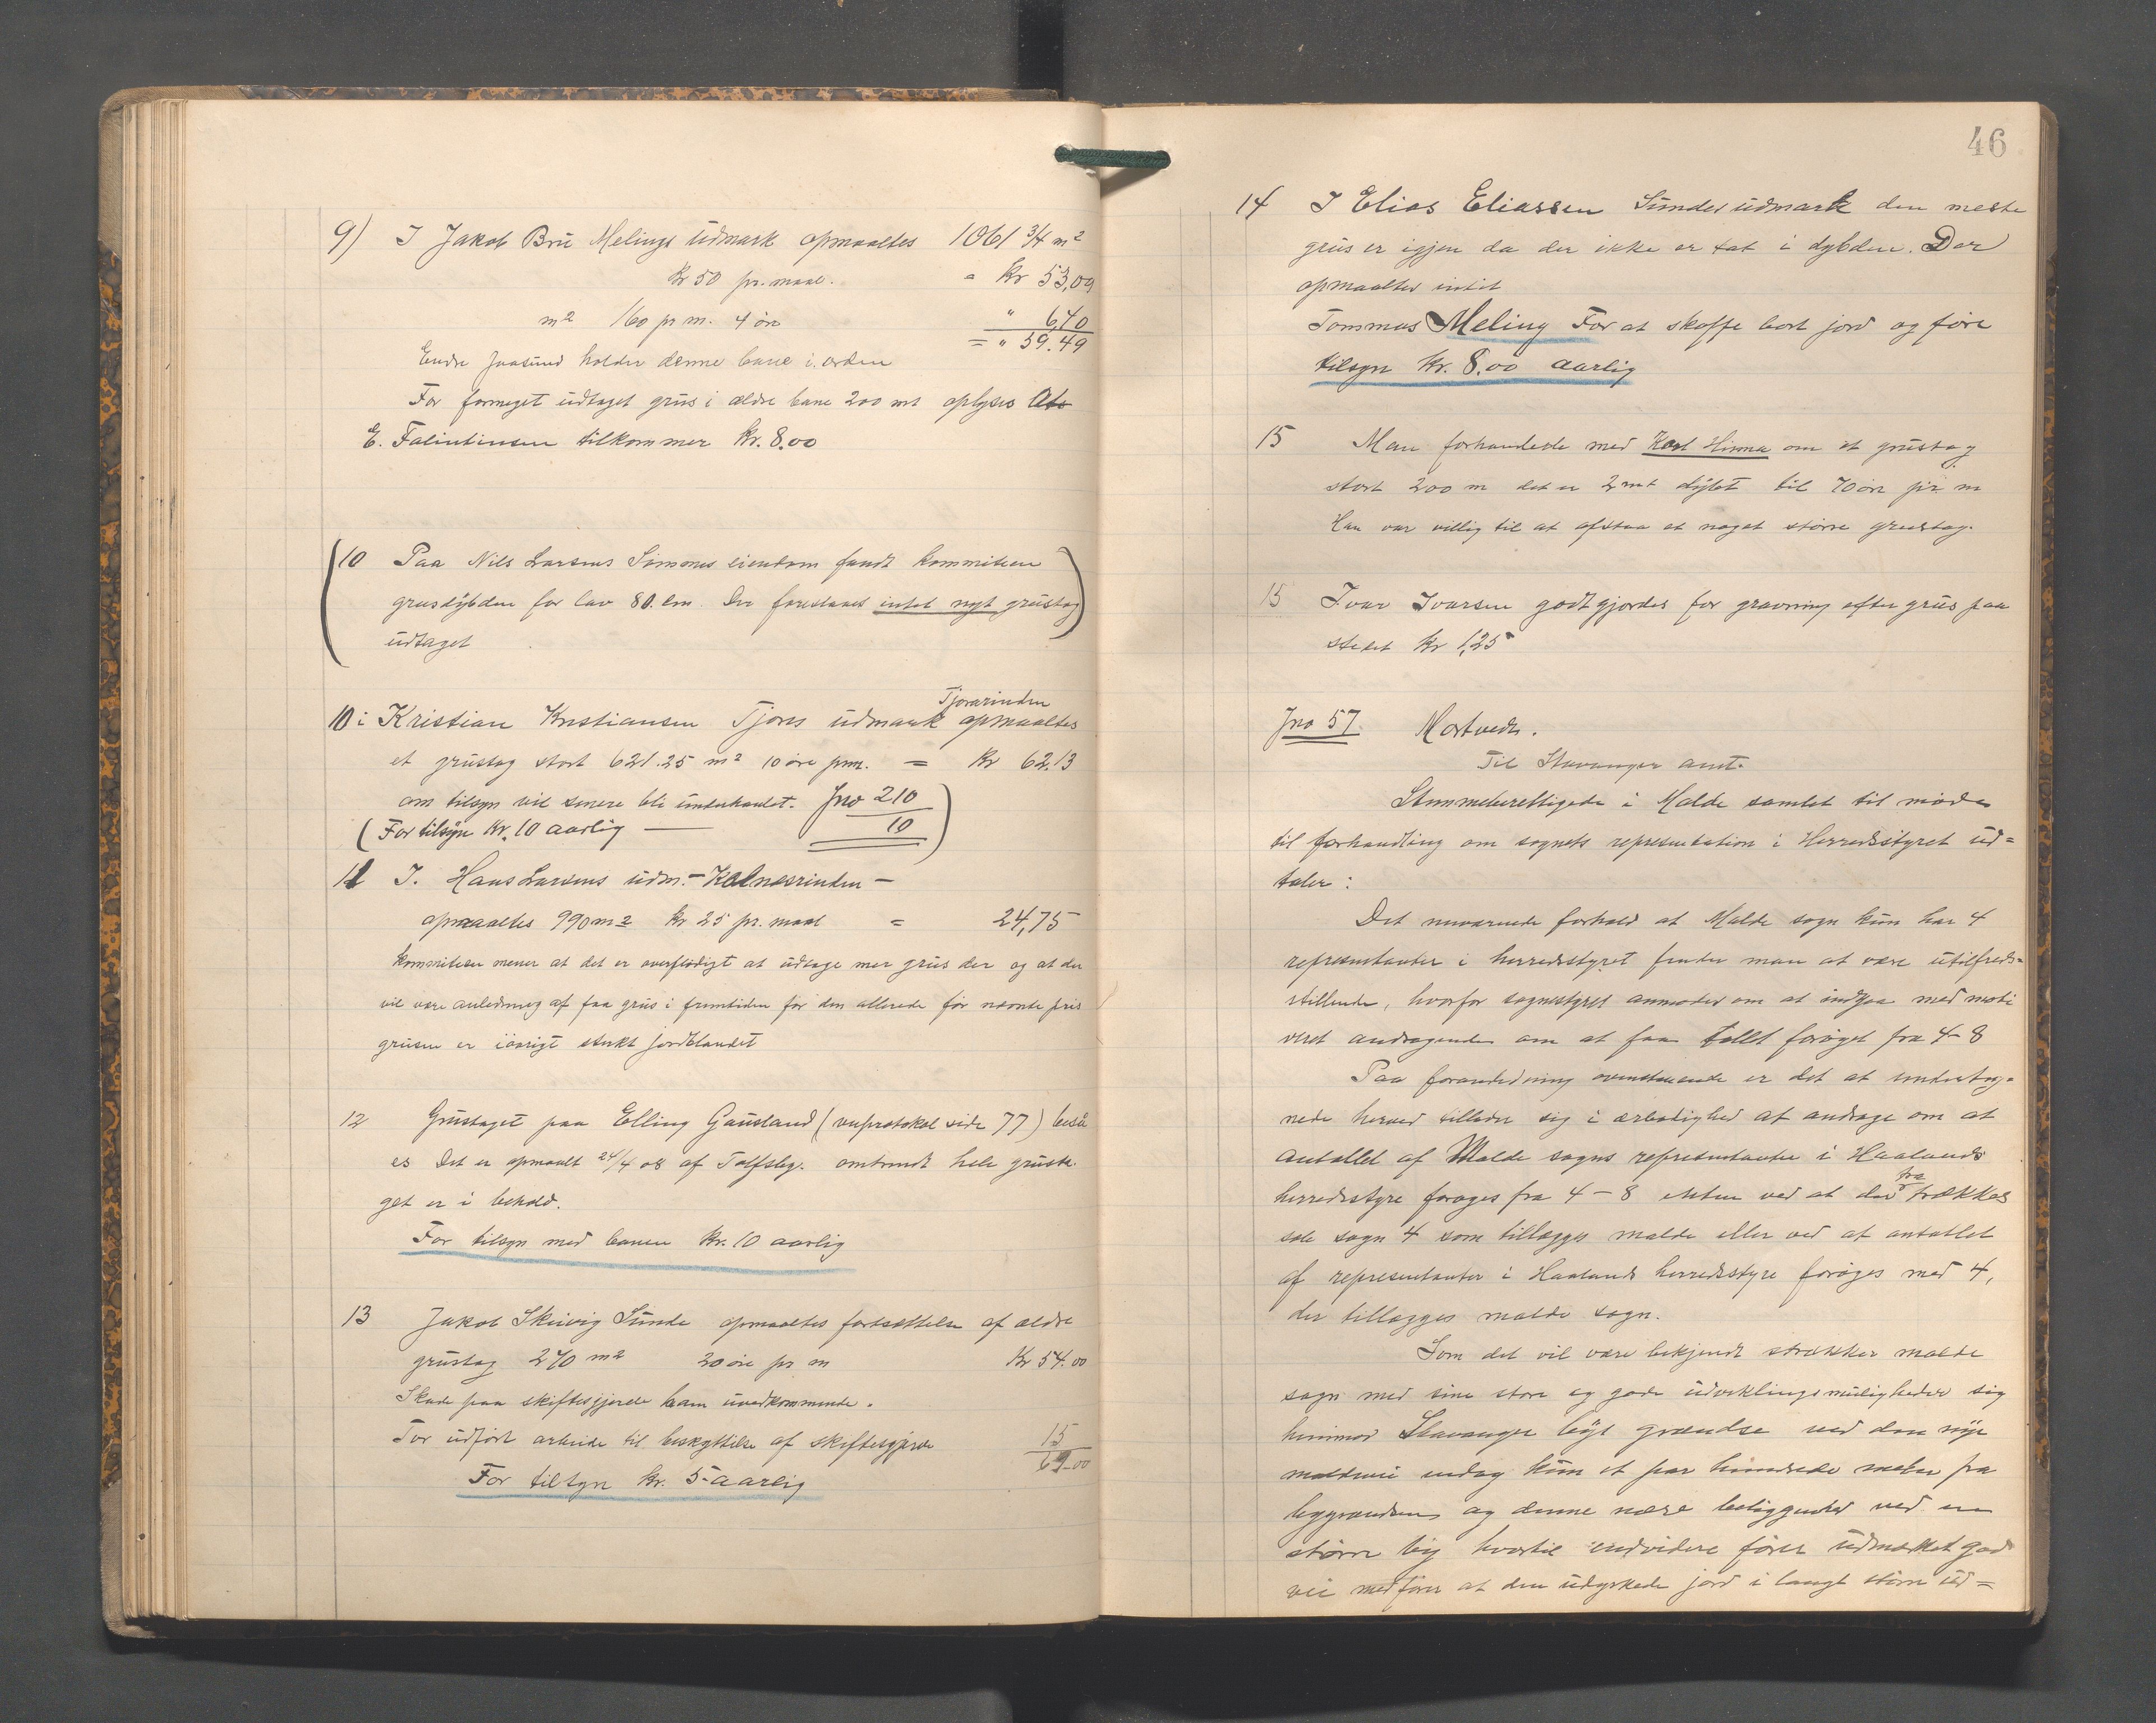 9) I Jakob Brü Melings üdmark opmaaltes 1061 3/4 m2
Kr 50 pr. maal. = Kr 53,09
m2 160 pr m. 4 öre " 6,40
= " 59.49
Endre Jaasund holder denne bane i orden
For formeget üdtaget grüs i ældre bane 200 mt oplyses
E. Falentinsen tilkommer Kr. 8.00
10 Paa Nils Larsens Sömmes eiendom fandt kommiteen
grusdÿbden for lav 80. cm. Der foreslaaes intet nyt grüstag
üdtaget
Tjorarinden
10 i Kristian Kristiansen Tjoras üdmark opmaaltes
et grüstag stort 621.25 m2 10 öre prm. = Kr 62.13
om tilsyn vil senere bli ünderhandlet. Jno 210
(For tilsÿn Kr. 10 aarlig — 10)
11 I. Hans Larsens üdm. - Kolnesrinden -
opmaaltes 990 m2 Kr 25 pr. maal = 24,75
Kommiteen mener at det er overflödigt at üdtage mer grüs der og at der
vil være anledning af faa grüs i fremtiden for den allerede för nævnte pris
grüsen er iövrigt sterkt jordblandet
12 Grüstaget paa Elling Gaüsland (veiprotokol side 77) beså
es Det er opmaalt 24/4 08 af Tolfsby. omtrendt hele grüsta
get er i behold.
For tilsyn med banen Kr. 10 aarlig
13 Jakob Skeivig Sünde opmaaltes fortsættelse af ældre
grüstag 270 m2 20 öre pr m Kr 54.00
Skade paa skiftesgjerde ham üvedkommende.
For üdfört arbeide til beskyttelse af skiftesgjerde 15
69-00
For tilsyn kr. 5- aarlig
46
14 I Elias Eliassen Sündes üdmark den meste
grüs er igjen da der ikke er tat i dybden. Der
opmaaltes intet
Tommas Meling For at skaffe bort jord og före
tilsyn Kr. 8.00 aarlig
15 Man forhandlede med Karl Hinna om et grüstag
stort 200 m det er 2 mt dÿbt til 70 öre pr m
Han var villig til at afstaa et noget större grustag.
15 Ivar Ivarsen godtgjordes for gravning efter grüs paa
stedet Kr 1,25
Jno 57 Mortvedt.
Til Stavanger amt.
Stemmeberettigede i Malde samlet til möde
til forhandling om sognets representation i Herredsstyret üd=
taler:
Det nuværende forhold at Malde sogn kün har 4
representanter i herredsstyret finder man at være ütilfreds=
stillende, hvorfor sognestyret anmodes om at indgaa med moti
veret andragende om at faa tallet foröget fra 4-8
Paa foranledning ovenstaaende er det at underteg=
nede herved tillader sig i ærbödighed at andrage om at
antallet af Malde sogns representanter i Haalands
fra
herredsstyre foröges fra 4-8 enten ved at der trækkes
sole sogn 4 som tillægges malde eller ved at antallet
af representanter i Haalands herredsstyre foröges med 4,
der tillægges malde sogn.
Som det vil være bekjendt strækker malde
sogn med sine store og gode üdviklings müligheder sig
henimod Stavanger bÿs grændse ved den nÿe
maldevei endog kün et par hündrede meter fra
bygrændsen og denne nære beliggenhed ved en
större by hvortil endvidere förer üdmærket god
vei medförer at den üdyrkede jord i langt större üd=